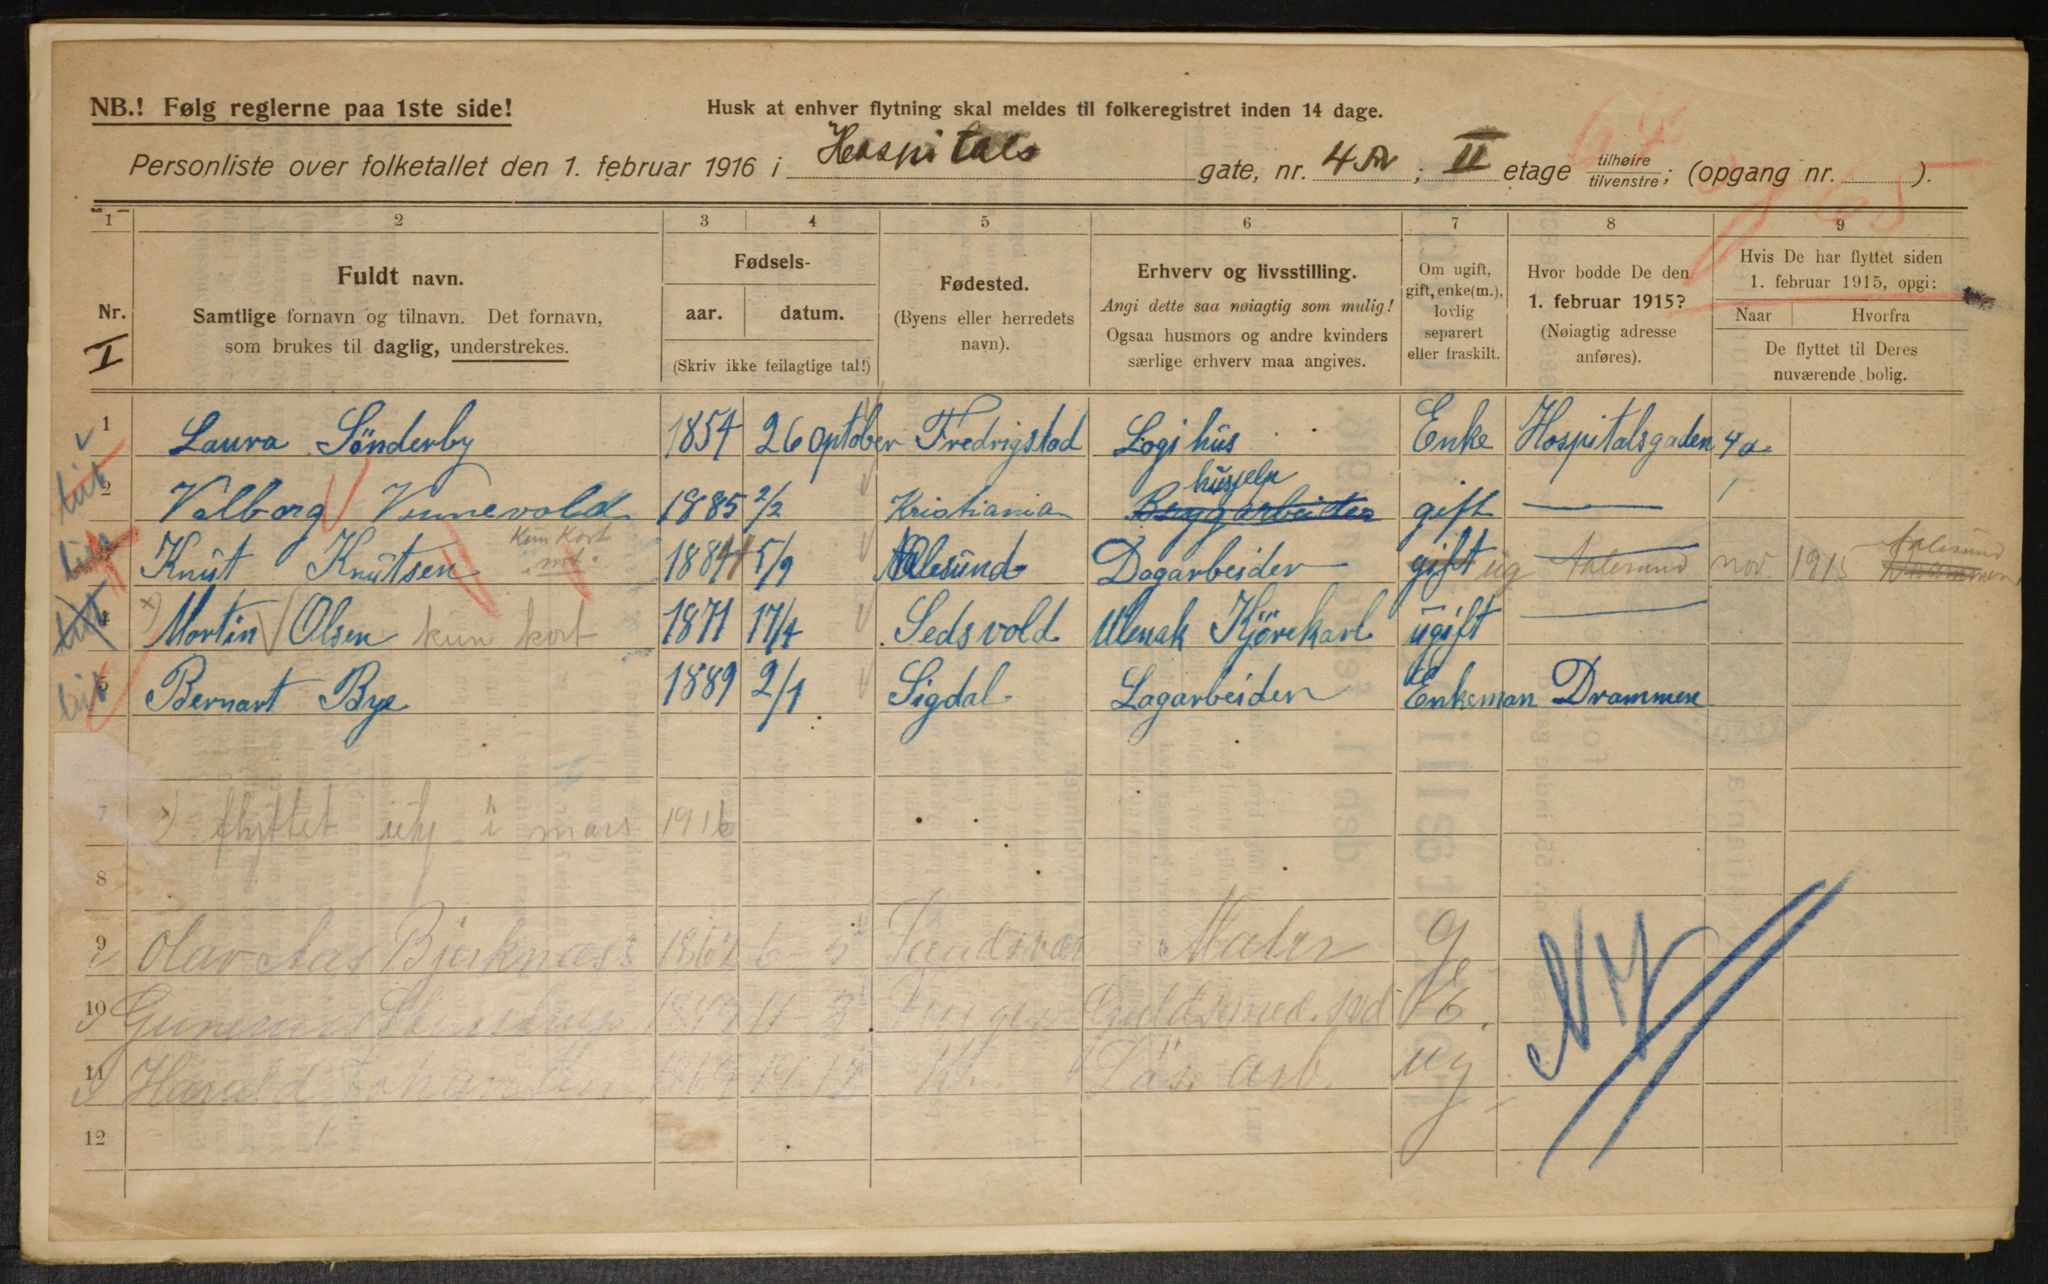 NB.! Følg reglerne paa 1ste side!
Husk at enhver flytning skal meldes til folkeregistret inden 14 dage.
Personliste over folketallet den 1. februar 1916 i Hospitals gate, nr. 4a ; II etage tilhøire tilvenstre; (opgang nr. ).
1 2 3 4 5 6 7 8 9
Nr.
I
Fuldt navn.
Samtlige fornavn og tilnavn. Det fornavn,
som brukes til daglig, understrekes.
Fødsels-
aar. datum.
(Skriv ikke feilagtige tal!)
Fødested.
(Byens eller herredets
navn).
Erhverv og livsstilling.
Angi dette saa nøiagtig som mulig!
Ogsaa husmors og andre kvinders
særlige erhverv maa angives.
Om ugift,
gift, enke(m.),
lovlig
separert
eller fraskilt.
Hvor bodde De den
1. februar 1915?
(Nøiagtig adresse
anføres).
Hvis De har flyttet siden
1. februar 1915, opgi:
Naar Hvorfra
De flyttet til Deres
nuværende bolig.
1 Laura Sönderby 1854 26 October Fredrigstad Logihus Enke Hospitalsgaden 4a
husjelp
2 Valborg Vennevold 1885 2/2 Kristiania Bryggarbeider gift —
3 Knut Knutsen kun kort 1884 5/9 Alesund Dagarbeider gift ug Aalesund nov. 1915 Aalesund
4 x) Martin Olsen kun kort 1871 17/4 Sedsvold Kjörekarl ugift —
5 Bernart Bye 1889 2/1 Sigdal Lagarbeider Enkeman Drammen
7 x) flyttet i mars 1916
8
9 Olav Aas Bjerknæss 6-5 Sandsvær Maler g
10 1849 11 3 E.
11 Harald Johansen Kr. Løs arb. ug
NY
12